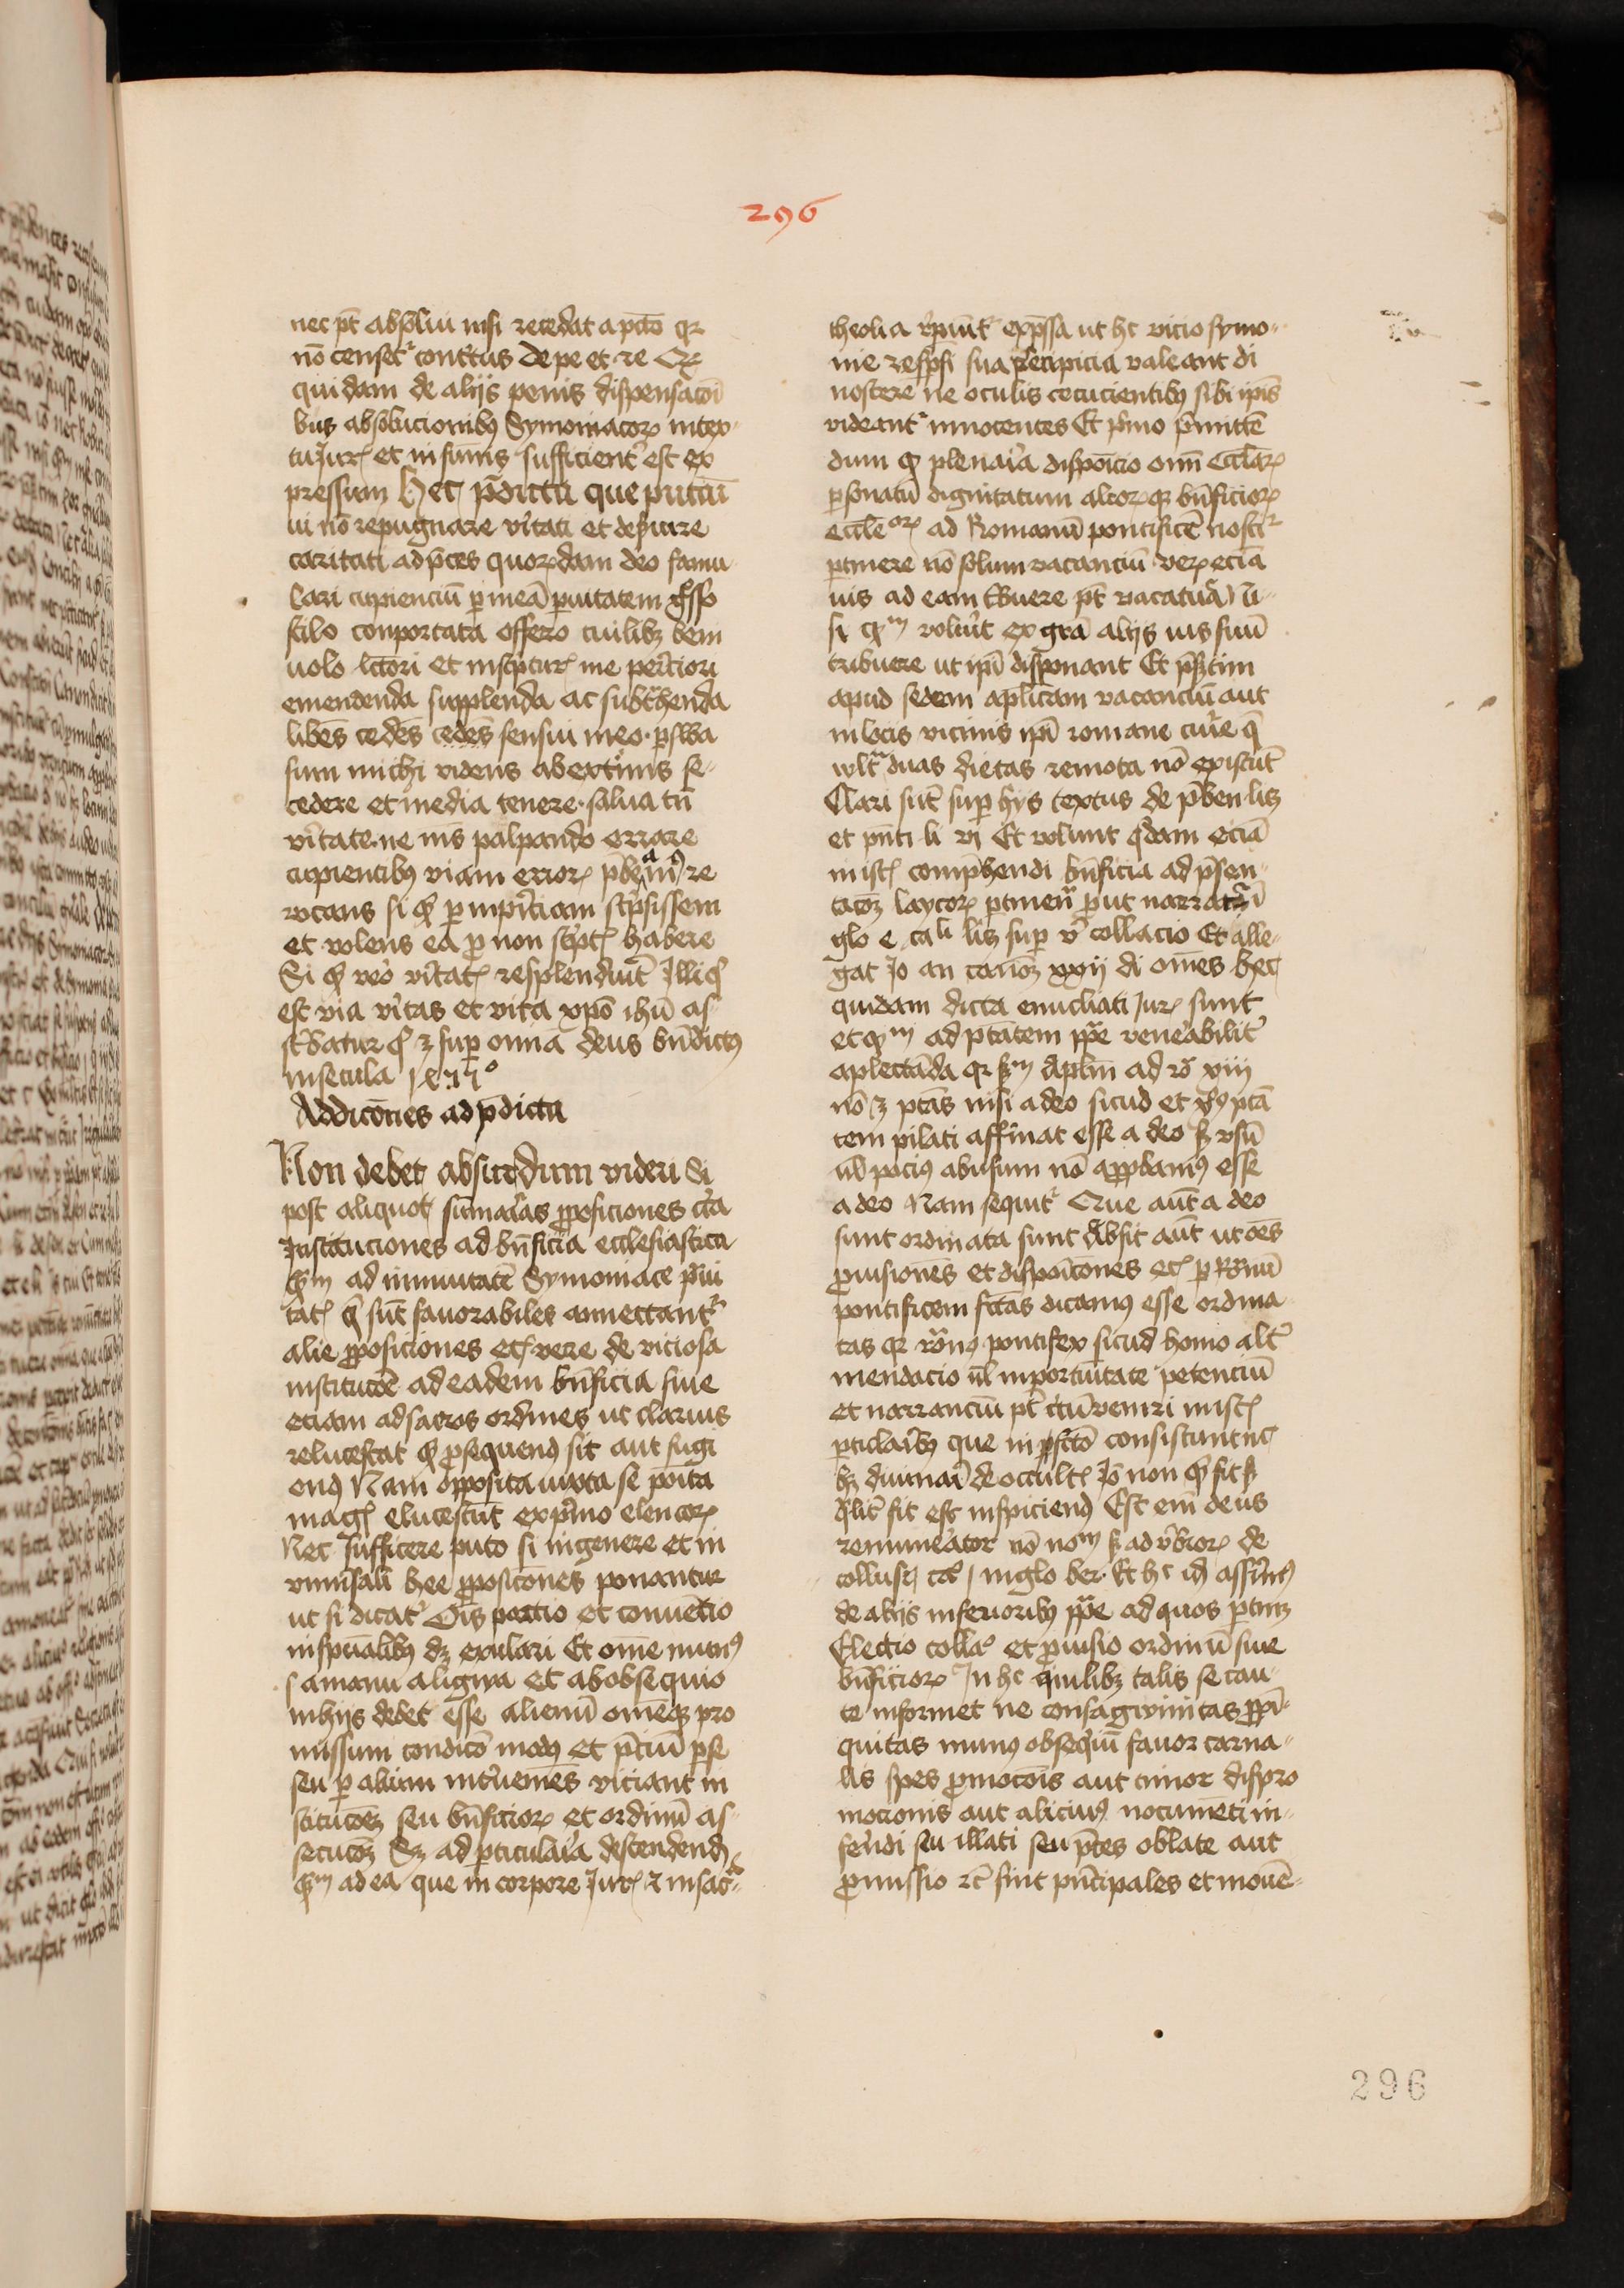 296
nec pt̄ absolui nisi recedat a pctō qr
nō censetr contritus de pe et re Ex
quidam de alijs penis dispensacōi
bus absolucionibꝫ Symoniacoꝝ in tex
tu Juris et in summis sufficienter est ex
pressum Hec p̄dicta que putaui
ui nō repugnare v̄itati et deseruire
caritati ad p̄ces quorūdam deo famu
lari cupienciū per meā paruitatem grosso
stilo conportata offero cuilibꝫ beni
uolo lectori et in scripturis me periciori
emendenda supplenda ac subtrahenda
libēs cedēs cedēs sensui meo. perswa
sum michi videns ab extremis re
cedere et media tenere. salua tn̄
v̄itate. ne nimis palpando errare
cupientibꝫ viam erroris prebeamꝫ re
uocans si quid per inpericiam scripsissem
et volens ea pro non scriptis habere
Si quid vero v̄itatis resplenduit Illi qui
est via v̄itas et vita xp̄o ihū as
scribatur qui est super omnia deus bn̄dictꝫ
in secula
Addicōnes ad p̄dicta
Non debet absurdum videri Si
post aliquot sūmarias p̄posiciones circa
Institutiones ad bn̄ficia ecclesiastica
quantum ad inmunitatē Symoniace praui
tatis que sūt fauorabiles annectantr
alie p̄posiciones etc vere de viciosa
institucōe ad eadem bn̄ficia siue
eciam ad sacros ordines ut clarius
relucescat quid prosequendꝫ sit aut fugi
endꝫ Nam opposita iuxta se poīta
magis elucescūt ex primo elencoꝝ
Nec sufficere puto si in genere et in
vniuersali hee p̄posicōnes ponantur
ut si dicatr Oīs pactio et conuētio
in spūalibꝫ dꝫ exulari Et om̄e munꝫ
s a manu a lingwa et ab obsequio
in hijs debet esse alienū omēqꝫ pro
missum condicō modꝫ et p̄ciū per se
seu per alium interueniēs viciant in
stitucōeꝫ seu bn̄ficioꝝ et ordinū as
secucōꝫ Sꝫ ad particularia descendendꝫ
quantum ad ea que in corpore Juris et in sacra
theolia reperiūtr expressa ut hc vicio symo
nie respersi sua precipicia valeant di
noscere ne oculis cecucientibꝫ sibi ipīs
videantr innocentes Et primo premittē
dum quod plenaria disposicio om̄ ecclesiaꝝ
personatū dignitatum alioꝝqꝫ bn̄ficioꝝ
eccleꝝ ad Romanū pontificē noscitr
pertinere nō solum vacanciū verꝫ eciā
ius ad eam tribuere pt̄ vacaturā ni
si quantum voluerit ex grā alijs ius suū
tribuere ut ipī disponant Et presertim
apud sedem aplicam vacanciū aut
in locis vicinis ipī romane curie que
ultra duas dietas remota nō existūt
Clari sūt super hijs textus de preben. licꝫ
et pn̄ti. li vi Et volunt quidam eciā
in istis comprehendi bn̄ficia ad presen
tacōꝫ laycoꝝ pertinēcia prout narratur ī
glo e. ca li licꝫ super v collacio Et alle
gat Jo an canoꝫ xxij di omēs hec
quidam dicta enucliati Juris sunt
et quantum ad ptātem pape venerabiliter
aplectāda qr secundum Aplm̄ ad ro xiij
nō est ptās nisi a deo sicud et xp̄s ptā
tem pilati affirmat esse a deo sꝫ vsū
uel pocius abusum nō approbamꝫ esse
a deo Nam sequitr Que aūt a deo
sunt ordinata sunt Absit aūt ut oēs
prouisionēs et disposicōnes etc per Romanū
pontificem factas dicamꝫ esse ordina
tas qr romanꝫ pontifex sicud homo alter
mendacio uel inportunitate petenciū
et narranciū pt̄ circūueniri in istis
particularibꝫ que in p facto consistunt nec
hꝫ diuinare de occultis Jo non quid fit sꝫ
qualiter fit est inspiciendꝫ Est em̄ deus
remunerator nō nominum sꝫ aduerbioꝝ de
collusi. in glo ber. Et hc idꝫ assūmꝫ
de alijs inferioribꝫ pape ad quos pertinꝫ
Electio colla et prouisio ordinū siue
bn̄ficioꝝ In hc quilibꝫ talis se cau
te informet ne consagwinitas ppī
quitas munꝫ obsequiū fauor carna
lis spes promocōis aut timor dispro
mocionis aut alicuiꝫ nocumēti in
ferendi seu illati seu preces oblate aut
promissio etc sint principales et mouē
296